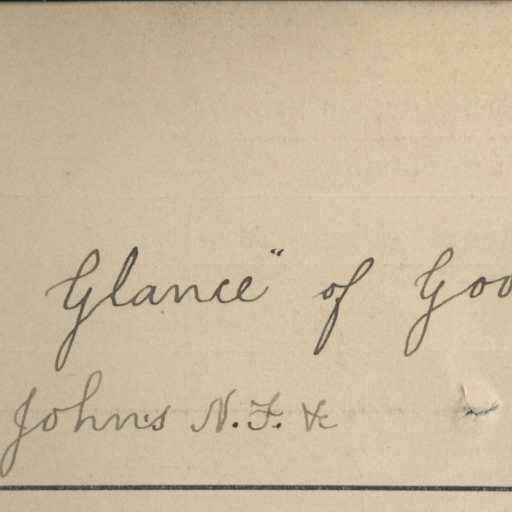 Glance" of Goo
Johns N.F. &c